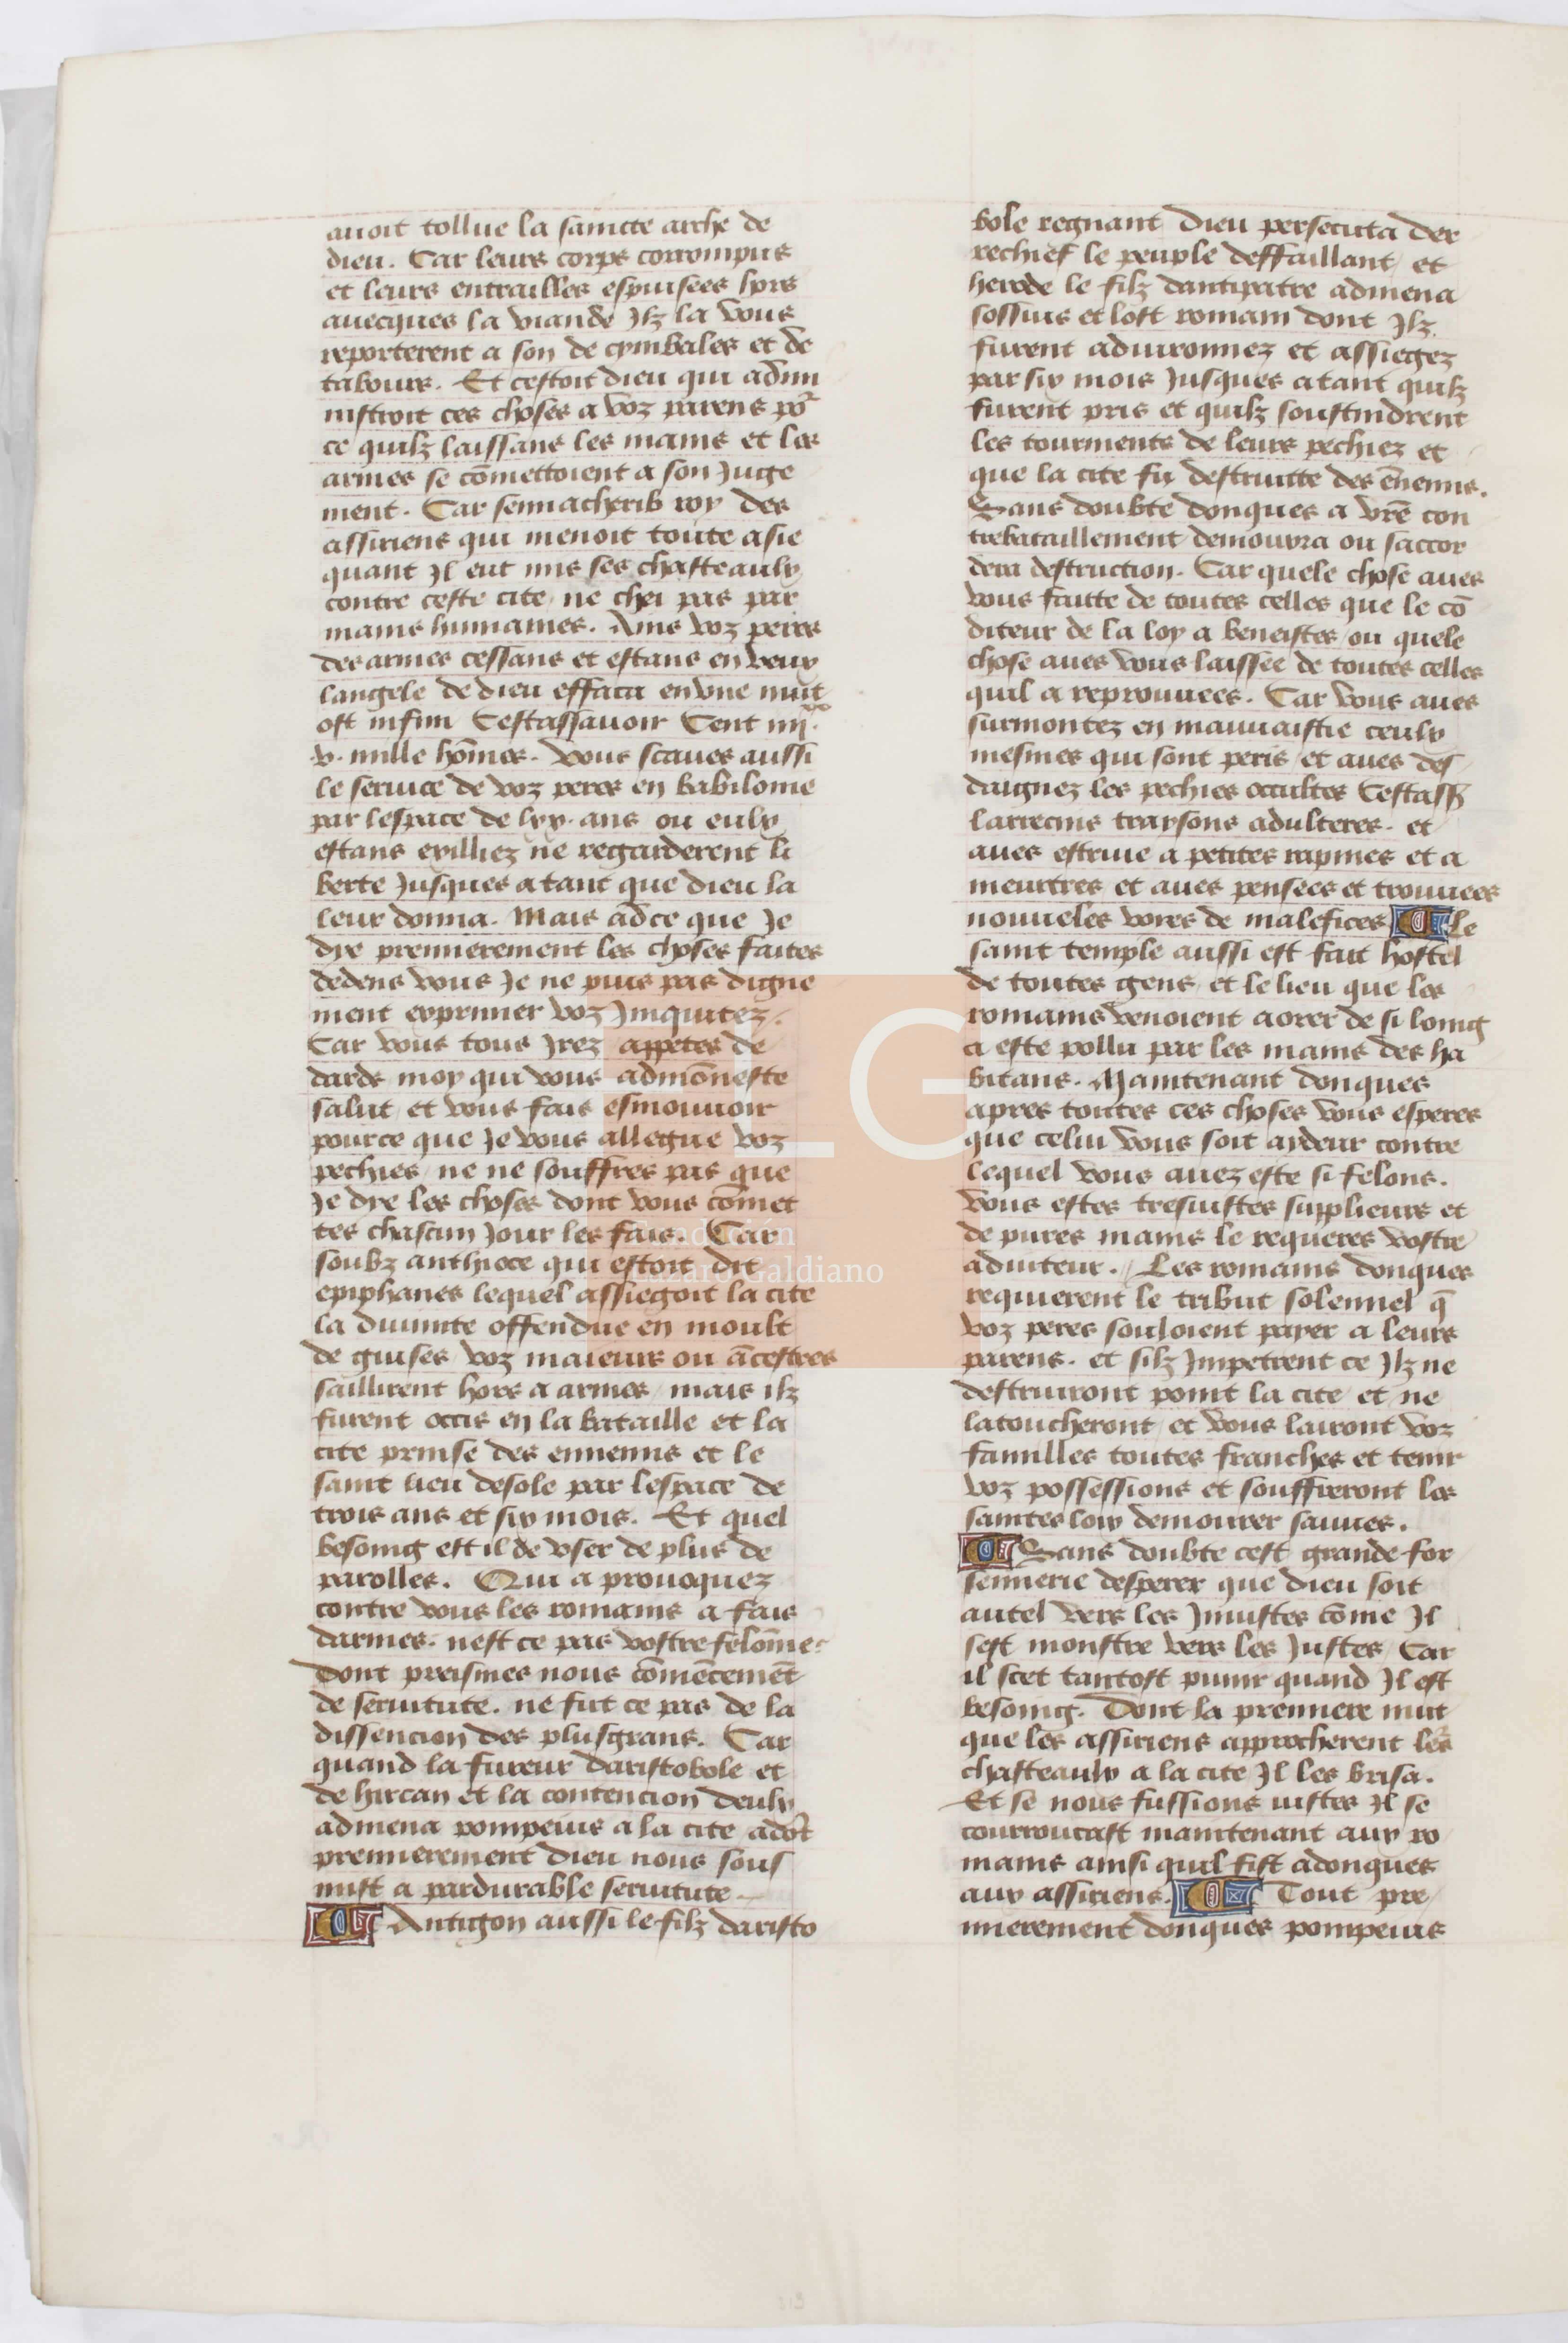 auoit tollue la saincte arche de
dieu. Car leurs corps corrompus
et leurs entrailles espuisees hors
auecques la viande Jlz la vous
reporterent a son de cymbales et de
tabours. Et cestoit dieu qui admi
nistroit ces choses a voz parens po᷑
ce quilz laissans les mains et les
armes se cōmettoient a son Juge
ment. Car sennacherib roy des
assiriens qui menoit toute asie
quant Jl eut mis ses chasteaulx
contre ceste cite ne chei pas par
mains humaines. Ains voz peres
des armes cessans et estans en veux
langele de dieu effaca en vne nuit
ost infini Cestassauoir Cent iiii.xx
v. mille hōmes. Vous scaues aussi
le seruice de voz peres en babilonie
par lespace de lxx. ans ou eulx
estans exilliez ne regarderent li
berte Jusques atant que dieu la
leur donna. Mais adce que Je
dye premierement les choses faites
dedens vous Je ne puis pas digne
ment exprimer voz Jniquitez.
Car vous tous Jrez appetes de
darde moy qui vous admōneste
salut et vous fais esmouuoir
pource que Je vous allegue voz
pechies ne ne souffres pas que
Je dye les choses dont vous cōmet
tes chascun Jour les fais. Car
soubz anthioce qui estoit dit
epiphanes lequel assiegoit la cite
la diuinite offendue en moult
de guises voz maieurs ou ācestres
saillirent hors a armes mais ilz
furent occis en la bataille et la
cite prinse des ennemis et le
saint lieu desole par lespace de
trois ans et six mois. Et quel
besoing est il de vser de plus de
parolles. Qui a prouoquez
contre vous les romains a fais
darmes. nest ce pas vostre felōnie
Dont preismes nous cōmēcemēt
de seruitute. ne fut ce pas de la
dissencion des plusgrans. Car
quand la fureur daristobole et
de hircan et la contencion deulx
admena pompeius a la cite adōt
premierement dieu nous sous
mist a pardurable seruitute
Antigon aussi le filz daristo
bole regnant dieu persecuta der
rechief le peuple deffaillant et
herode le filz dantipatre admena
sossius et lost romain dont Jlz
furent aduironnez et assiegez
par six mois Jusques atant quilz
furent pris et quilz soustindrent
les tourments de leurs pechiez et
que la cite fu destruitte des ēnemis.
Sans doubte donques a vr̄e con
trebataillement demouura ou saccor
dera destruction. Car quele chose aues
vous faitte de toutes celles que le cō
diteur de la loy a beneistes ou quele
chose aues vous laissee de toutes celles
quil a reprouuees. Car vous aues
surmontez en mauuaistie ceulx
mesmes qui sont peris et aues des
daignez les pechies occultes Cestass̄
larrecins traysons adulteres. et
aues estriue a petites rapines et a
meurtres et aues pensees et trouuees
nouueles voies de malefices le
saint temple aussi est fait hostel
de toutes gens et le lieu que les
romains venoient aorer de si loing
a este pollu par les mains des ha
bitans. Maintenant donques
apres toutes ces choses vous esperes
que celui vous soit aydeur contre
lequel vous auez este si felons.
Vous estes tresiustes suplieurs et
de pures mains le requeres vostre
aduiteur. Les romains donques
requierent le tribut solennel q̄
voz peres souloient payer a leurs
parens. et silz Jmpetrent ce Jlz ne
destruiront point la cite et ne
latoucheront et vous lairont voz
familles toutes franches et tenir
voz possessions et souffreront les
saintes loix demourer sauues.
Sans doubte cest grande for
sennerie desperer que dieu soit
autel vers les Jniustes cōme Jl
sest monstre vers les Justes Car
il scet tantost punir quand Jl est
besoing. Dont la premiere nuit
que les assiriens approcherent les
chasteaulx a la cite Jl les brisa.
Et se nous fussions iustes Jl se
courroucast maintenant aux ro
mains ainsi quil fist adonques
aux assiriens. Tout pre
mierement donques pompeius
LG
Fundación
Lázaro Galdiano